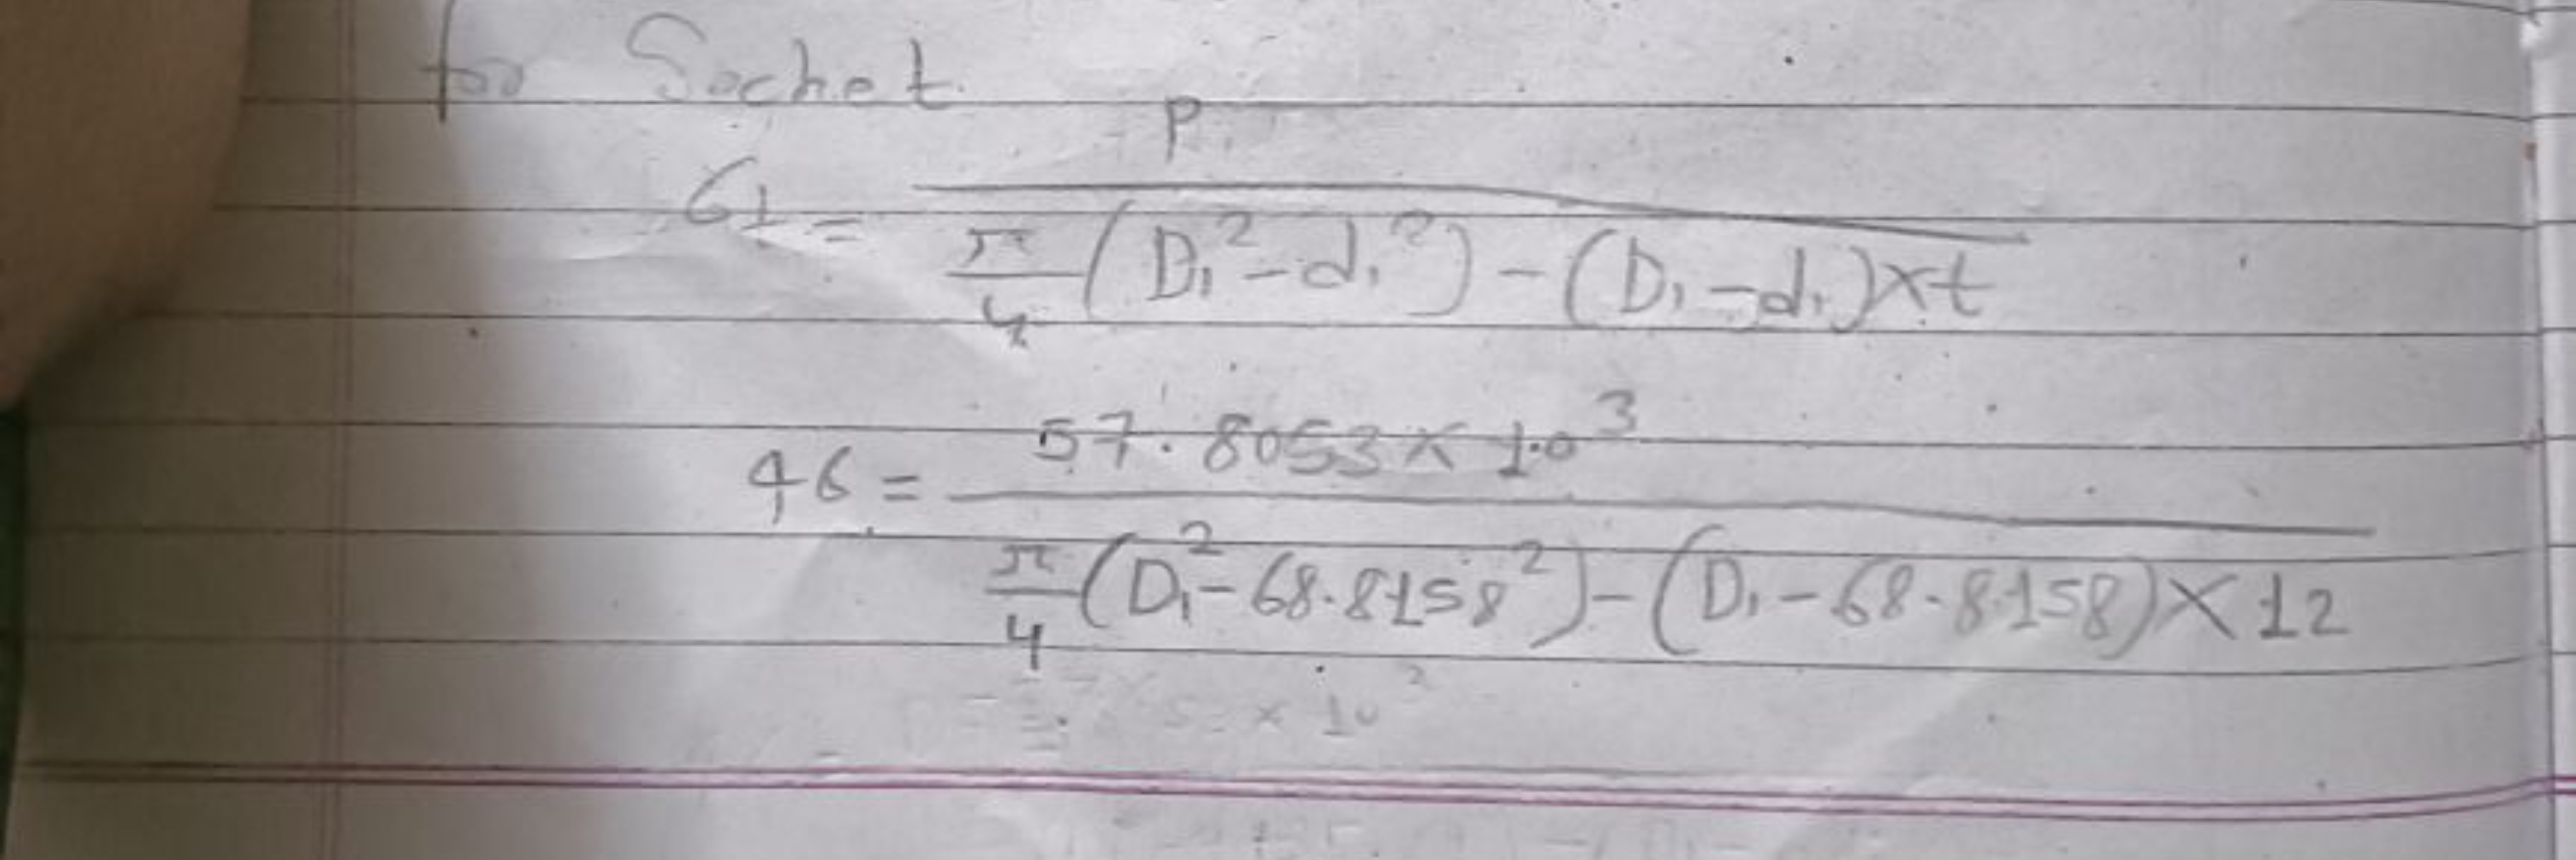 for Socket
σt = P / π/4 (D₁² - d₁²) - (D₁ - d₁) × t
46 = 57.8053 × 10³ / π/4 (D₁² - 68.8158²) - (D₁ - 68.8158) × 12